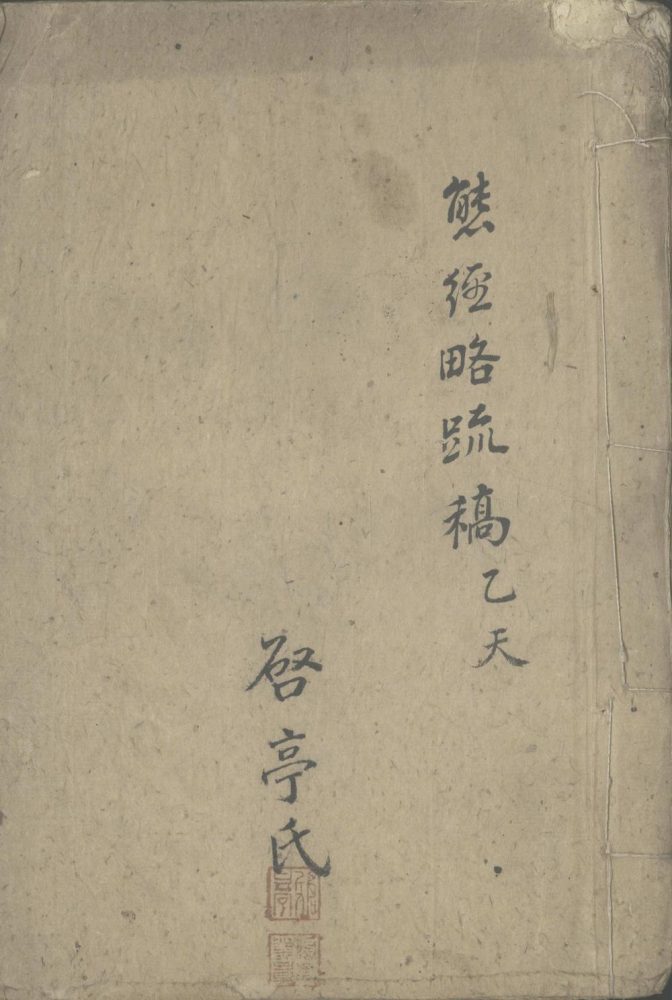 熊經略䟽稿乙天
啓亭氏